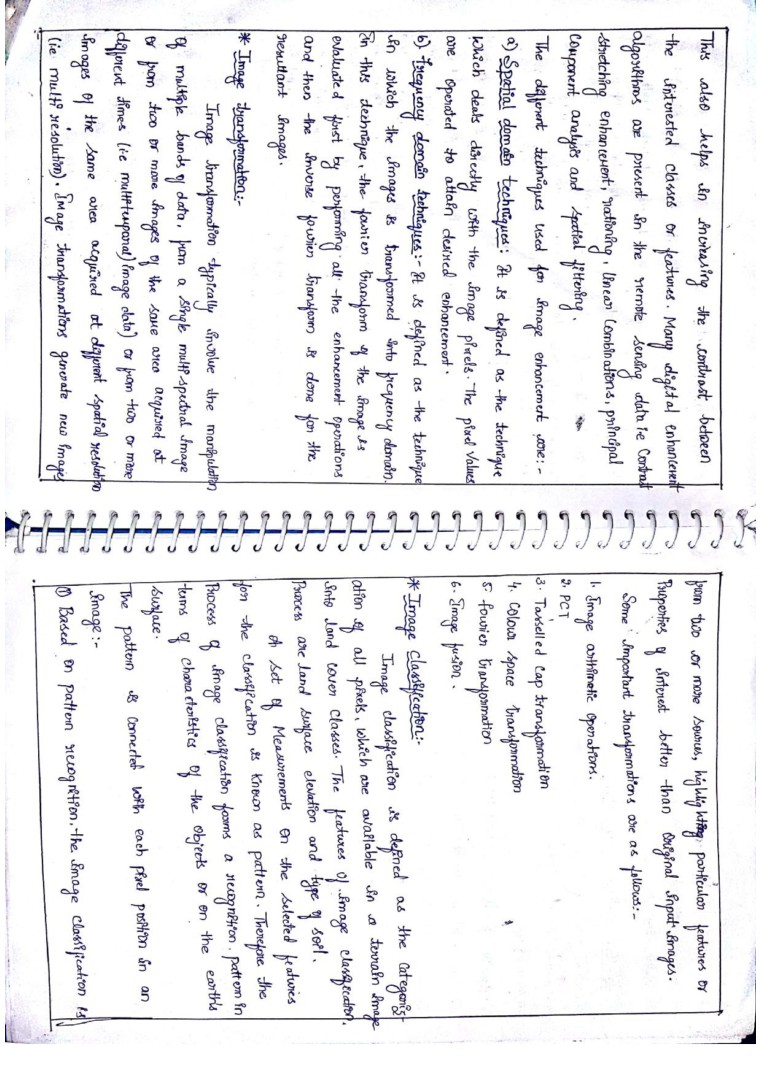 This also helps in increasing the contrast between
the interested classes or features. Many digital enhancement
algorithms are present in the remote sensing data i.e Contrast
stretching enhancement, rationing, linear Combinations, principal
Component analysis and spatial filtering.
The different techniques used for image enhancement are:-
a) Spatial domain techniques: It is defined as the technique
which deals directly with the image pixels. The pixel values
are operated to attain desired enhancement.
b) Frequency domain techniques:- It is defined as the technique
in which the images is transformed into frequency domain.
In this technique, the fourier transform of the image is
evaluated first by performing all the enhancement operations
and then the inverse fourier transform is done for the
resultant images.
* Image transformation:-
Image transformation typically involve the manipulation
of multiple bands of data, from a single multi-spectral image
or from two or more images of the same area acquired at
different times (i.e multitemporal) image data) or from two or more
images of the same area acquired at different spatial resolution
(i.e multi resolution). Image transformations generate new images
from two or more sources, highlighting particular features or
Properties of interest better than Original input images.
Some important transformations are as follows:-
1. Image arithmetic operations.
2. PCT
3. Tasselled Cap transformation
4. Colour space transformation
5. fourier transformation
6. Image fusion.
* Image Classification:-
Image classification is defined as the Categoris-
ation of all pixels, which are available in a terrain image
into land cover classes. The features of image classification
Process are land surface elevation and type of soil.
A set of Measurements on the selected features
for the classification is known as pattern. Therefore the
Process of image classification forms a recognition pattern in
terms of characteristics of the objects or on the earth's
surface.
The pattern is connected with each pixel position in an
image:-
① Based on pattern recognition, the image classification is